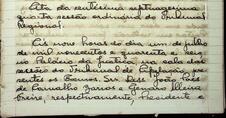 Ata da centesima septuagesima
quarta sessão ordinaria do Tribunal
Regional.
Aás nove horas do dia um de julho
de mil novecentos e quarenta e seis
no Palacio da Justiça, na sala das
sessões do Tribunal de Apelação, pre-
sentes os Exmos. Srs. Des. João Paes
de Carvalho Barros e Genaro Freire,
respectivamente, Presidente e